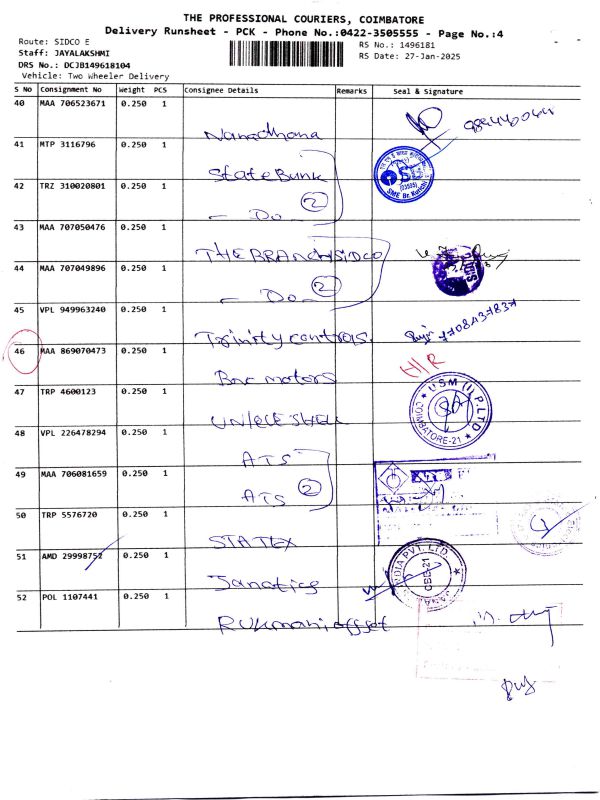 THE PROFESSIONAL COURIERS, COIMBATORE
Delivery Runsheet - PCK - Phone No.:0422-3505555 - Page No.:4
Route: SIDCO E
RS No.: 1496181
Staff: JAYALAKSHMI
RS Date: 27-Jan-2025
DRS No.: DCJB149618104
Vehicle: Two Wheeler Delivery
S No Consignment No Weight PCS Consignee Details Remarks Seal & Signature
40 MAA 706523671 0.250 1
41 MTP 3116796 0.250 1
State Bank
42 TRZ 310020801 0.250 1
2
- Do -
43 MAA 707050476 0.250 1
THE BRANCH SIDCO
44 MAA 707049896 0.250 1
2
- Do -
45 VPL 949963240 0.250 1
Trinity controls
46 MAA 869070473 0.250 1
H/R
Bnr motors
47 TRP 4600123 0.250 1
USM (I) P.LTD
COIMBATORE-21
48 VPL 226478294 0.250 1
ATS
49 MAA 706081659 0.250 1
ATS 2
50 TRP 5576720 0.250 1
STATEX
51 AMD 29998752 0.250 1
INDIA PVT. LTD
CBE-21
Janatics
52 POL 1107441 0.250 1
Rukmani offset